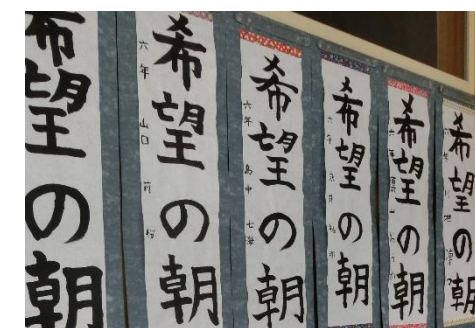 希望の朝
希望の朝
六年 山口
希望の朝
六年 島中 七海
希望の朝
六年 永井
希望の朝
六年
希望の朝